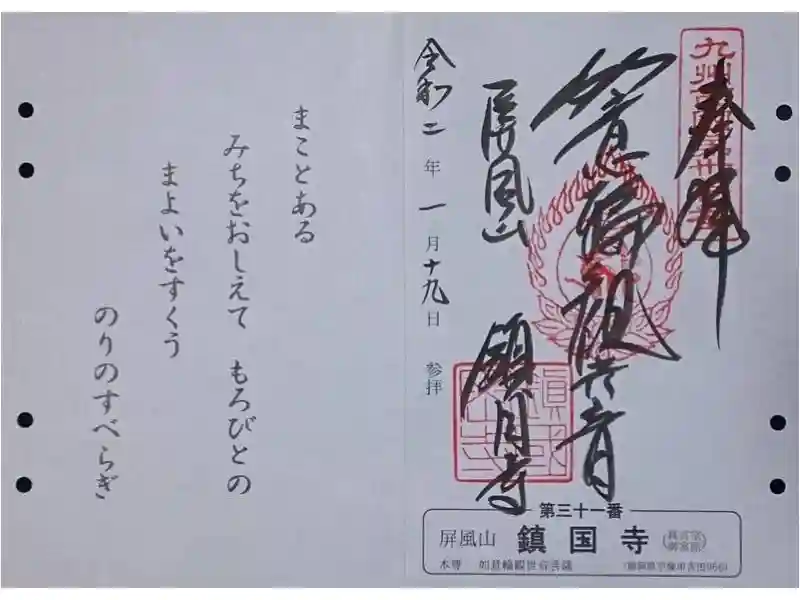 奉拝
如意輪観世音
屏風山 鎮国寺
令和二年一月十九日 参拝
第三十一番
屏風山 鎮国寺 (真言宗御室派)
本尊 如意輪観世音菩薩 (福岡県宗像市吉田966)
まことある
みちをおしえて もろびとの
まよいをすくう
のりのすべらぎ